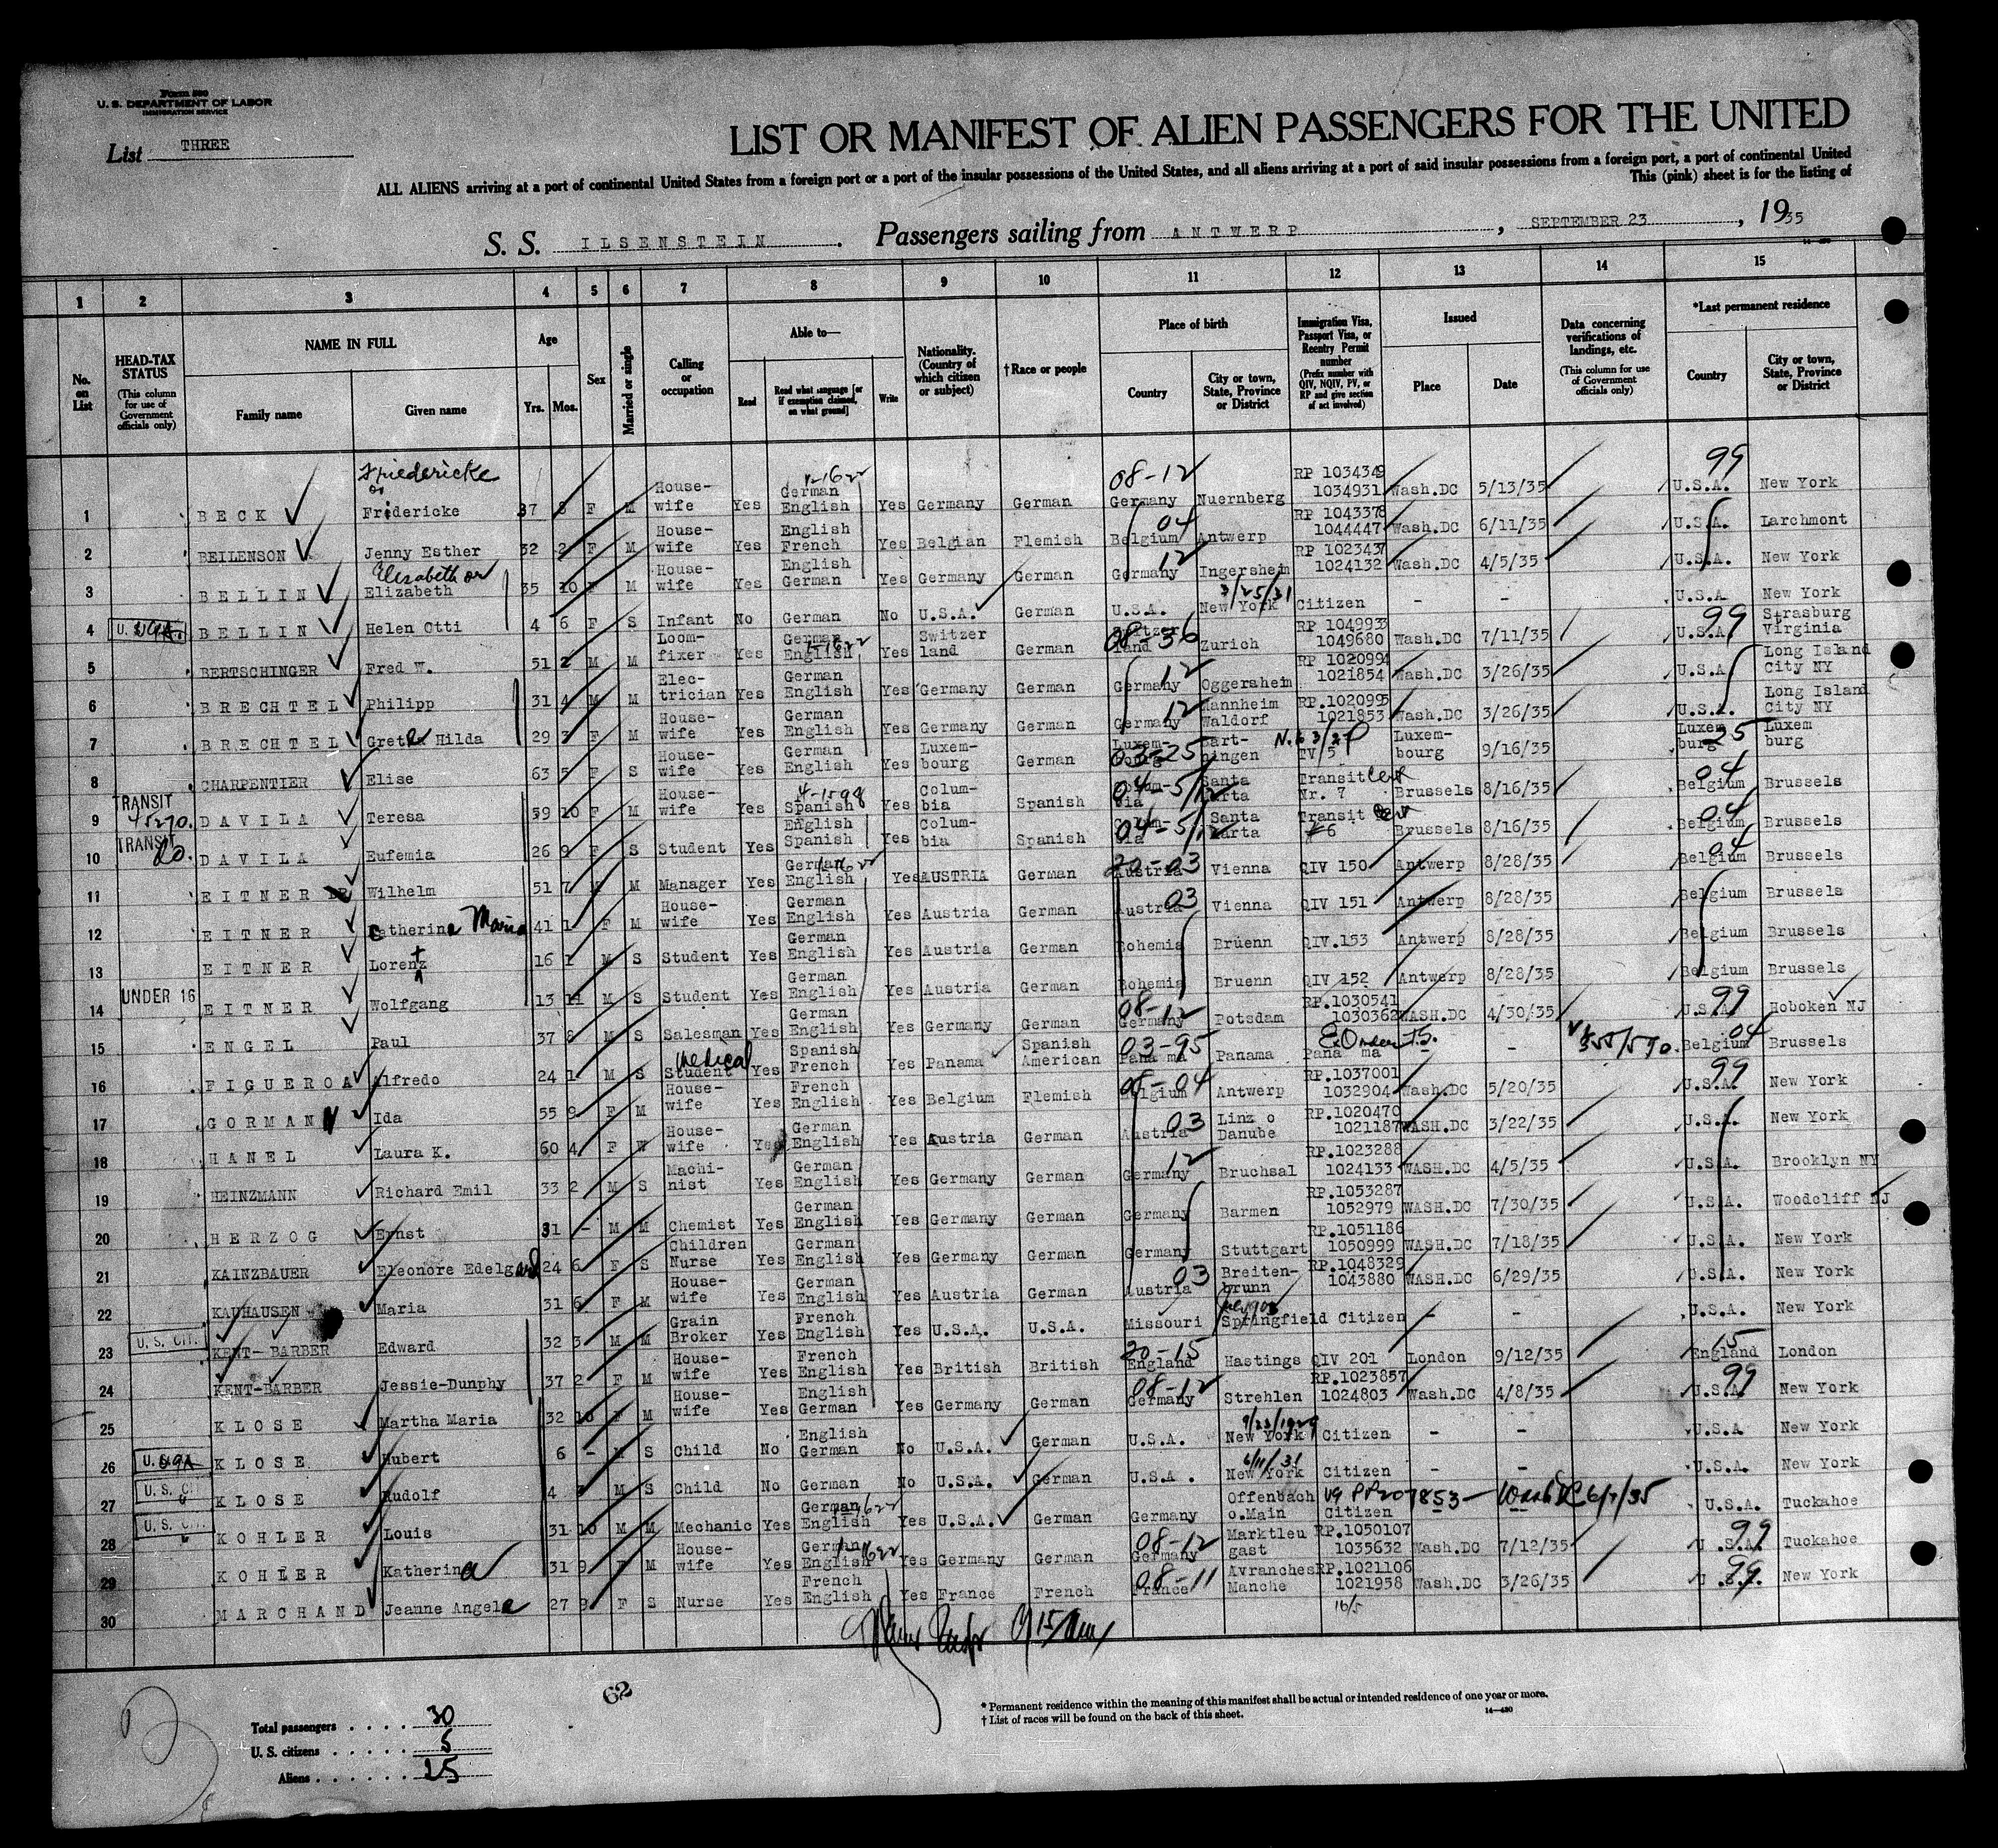 Form 500
U. S. DEPARTMENT OF LABOR
IMMIGRATION SERVICE
List THREE
LIST OR MANIFEST OF ALIEN PASSENGERS FOR THE UNITED
ALL ALIENS arriving at a port of continental United States from a foreign port or a port of the insular possessions of the United States, and all aliens arriving at a port of said insular possessions from a foreign port, a port of continental United
This (pink) sheet is for the listing of
S. S. ILSENSTEIN . Passengers sailing from ANTWERP , SEPTEMBER 23 , 1935
1 2 3 4 5 6 7 8 9 10 11 12 13 14 15
No. on List
HEAD-TAX STATUS (This column for use of Government officials only)
NAME IN FULL
Family name Given name
Age Yrs. Mos.
Sex
Married or single
Calling or occupation
Able to—
Read Read what language [or if exemption claimed, on what ground] Write
Nationality. (Country of which citizen or subject)
†Race or people
Place of birth
Country City or town, State, Province or District
Immigration Visa, Passport Visa, or Reentry Permit number (Prefix number with QIV, NQIV, PV, or RP and give section of act involved)
Issued
Place Date
Data concerning verifications of landings, etc. (This column for use of Government officials only)
*Last permanent residence
Country City or town, State, Province or District
1 BECK Friedericke or Fridericke 37 8 F M House-wife Yes German English Yes Germany German 08-12 Germany Nuernberg RP 1034349 1034931 Wash.DC 5/13/35 99 U.S.A. New York
2 BEILENSON Jenny Esther 32 2 F M House-wife Yes English French Yes Belgian Flemish 04 Belgium Antwerp RP 1043378 1044447 Wash.DC 6/11/35 U.S.A. Larchmont
3 BELLIN Elisabeth or Elizabeth 35 10 F M House-wife Yes English German Yes Germany German 12 Germany Ingersheim RP 1023437 1024132 Wash.DC 4/5/35 U.S.A. New York
4 BELLIN Helen Otti 4 6 F S Infant No German No U.S.A. German U.S.A. 3/25/31 New York Citizen - - U.S.A. New York
5 BERTSCHINGER Fred W. 51 2 M M Loom-fixer Yes German English Yes Switzer land German 08-36 Zurich RP 104993 1049680 Wash.DC 7/11/35 99 U.S.A. Strasburg Virginia
6 BRECHTEL Philipp 31 4 M M Elec-trician Yes German English Yes Germany German 12 Germany Oggersheim RP 1020994 1021854 Wash.DC 3/26/35 U.S.A. Long Island City NY
7 BRECHTEL Hilda 29 3 F M House-wife Yes German English Yes Germany German 12 Germany Mannheim Waldorf RP.1020995 1021853 Wash.DC 3/26/35 U.S.A. Long Island City NY
8 CHARPENTIER Elise 63 5 F S House-wife Yes German English Yes Luxem-bourg German 03-25 TV 5 Luxem-bourg 9/16/35 Luxem burg 25 Luxem burg
TRANSIT
9 DAVILA Teresa 59 10 F M House-wife Yes 4-1598 Spanish Yes Colum-bia Spanish 04-5/12 Santa Marta Transit Nr. 7 Brussels 8/16/35 04 Belgium Brussels
TRANSIT
10 DAVILA Eufemia 26 9 F S Student Yes English Spanish Yes Colum-bia Spanish 04-5/12 Santa Marta Transit #6 Brussels 8/16/35 04 Belgium Brussels
11 EITNER Wilhelm 51 7 M Manager Yes German English Yes AUSTRIA German 20-03 Austria Vienna QIV 150 Antwerp 8/28/35 04 Belgium Brussels
12 EITNER Catherina Maria 41 1 F M House-wife Yes German English Yes Austria German 03 Austria Vienna QIV 151 Antwerp 8/28/35 Belgium Brussels
13 EITNER Lorenz 16 1 M S Student Yes German English Yes Austria German Bohemia Bruenn QIV.153 Antwerp 8/28/35 Belgium Brussels
UNDER 16
14 EITNER Wolfgang 13 11 M S Student Yes German English Yes Austria German Bohemia Bruenn QIV 152 Antwerp 8/28/35 Belgium Brussels
15 ENGEL Paul 37 8 M S Salesman Yes German English Yes Germany German 08-12 Germany Potsdam RP.1030541 1030362 WASH.DC 4/30/35 99 U.S.A. Hoboken NJ
16 FIGUEROA Alfredo 24 1 M S Medical Student Yes Spanish French Yes Panama Spanish American 03-95 Pana ma Panama Pana ma - 04 Belgium Brussels
17 GORMAN Ida 55 9 F M House-wife Yes French English Yes Belgium Flemish 08-04 Belgium Antwerp RP.1037001 1032904 Wash.DC 5/20/35 99 U.S.A. New York
18 HANEL Laura K. 60 4 F W House-wife Yes German English Yes Austria German 03 Austria Linz o Danube RP.1020470 1021187 WASH.DC 3/22/35 U.S.A. New York
19 HEINZMANN Richard Emil 33 2 M S Machi-nist Yes German English Yes Germany German 12 Germany Bruchsal RP.1023288 1024133 WASH.DC 4/5/35 U.S.A. Brooklyn NY
20 HERZOG Ernst 31 - M M Chemist Yes German English Yes Germany German Germany Barmen RP.1053287 1052979 WASH.DC 7/30/35 U.S.A. Woodcliff NJ
21 KAINZBAUER Eleonore Edelgard 24 6 F S Children Nurse Yes German English Yes Germany German Germany Stuttgart RP.1051186 1050999 WASH.DC 7/18/35 U.S.A. New York
22 KAUHAUSEN Maria 31 6 F M House-wife Yes German English Yes Austria German 03 Austria Breiten-brunn RP.1048329 1043880 WASH.DC 6/29/35 U.S.A. New York
U. S. CIT.
23 KENT-BARBER Edward 32 3 M M Grain Broker Yes French English Yes U.S.A. U.S.A. Missouri Springfield Citizen - - U.S.A. New York
24 KENT-BARBER Jessie-Dunphy 37 2 F M House-wife Yes French English Yes British British 20-15 England Hastings QIV 201 London 9/12/35 15 England London
25 KLOSE Martha Maria 32 10 F M House-wife Yes English German Yes Germany German 08-12 Germany Strehlen RP.1023857 1024803 Wash.DC 4/8/35 99 U.S.A. New York
26 KLOSE Hubert 6 - M S Child No English German No U.S.A. German U.S.A. 9/23/1929 New York Citizen - - U.S.A. New York
U. S. CIT.
27 KLOSE Rudolf 4 M S Child No German No U.S.A. German U.S.A. 6/11/31 New York Citizen - - U.S.A. New York
U. S. CIT.
28 KOHLER Louis 31 10 M M Mechanic Yes German English Yes U.S.A. German Germany Offenbach o.Main Citizen Wash DC U.S.A. Tuckahoe
29 KOHLER Katherina 31 9 F M House-wife Yes German English Yes Germany German 08-12 Germany Marktleu gast RP.1050107 1035632 Wash.DC 7/12/35 99 U.S.A. Tuckahoe
30 MARCHAND Jeanne Angele 27 9 F S Nurse Yes French English Yes France French 08-11 France Avranches Manche RP.1021106 1021958 Wash.DC 3/26/35 99 New York
16/5
9 15/am
62
Total passengers . . . . 30
U. S. citizens . . . . . 5
Aliens . . . . . . 25
* Permanent residence within the meaning of this manifest shall be actual or intended residence of one year or more.
† List of races will be found on the back of this sheet.
14—480